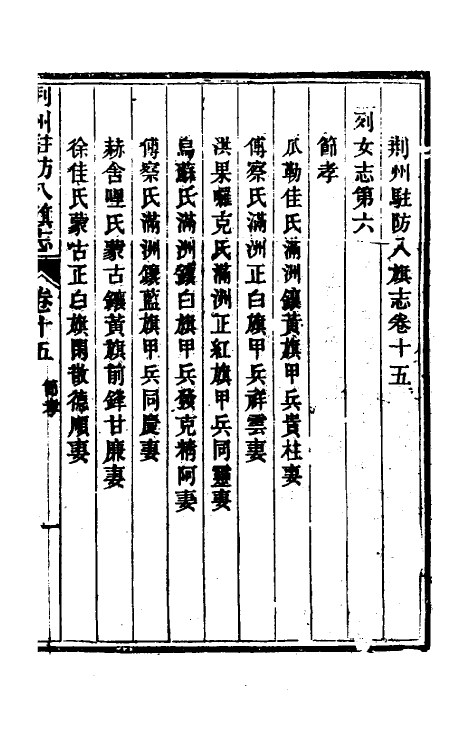 荆州駐防八旗志卷十五
列女志第六
節孝
瓜勒佳氏滿洲鑲黃旗甲兵貴柱妻
傅察氏滿洲正白旗甲兵祥雲妻
洪果囉克氏滿洲正紅旗甲兵同靈妻
烏蘇氏滿洲鑲白旗甲兵發克精阿妻
傅察氏滿洲鑲藍旗甲兵同慶妻
赫舍哩氏蒙古鑲黃旗前鋒甘廉妻
徐佳氏蒙古正白旗閑散德順妻
荆州駐防八旗志 卷十五 節孝 一